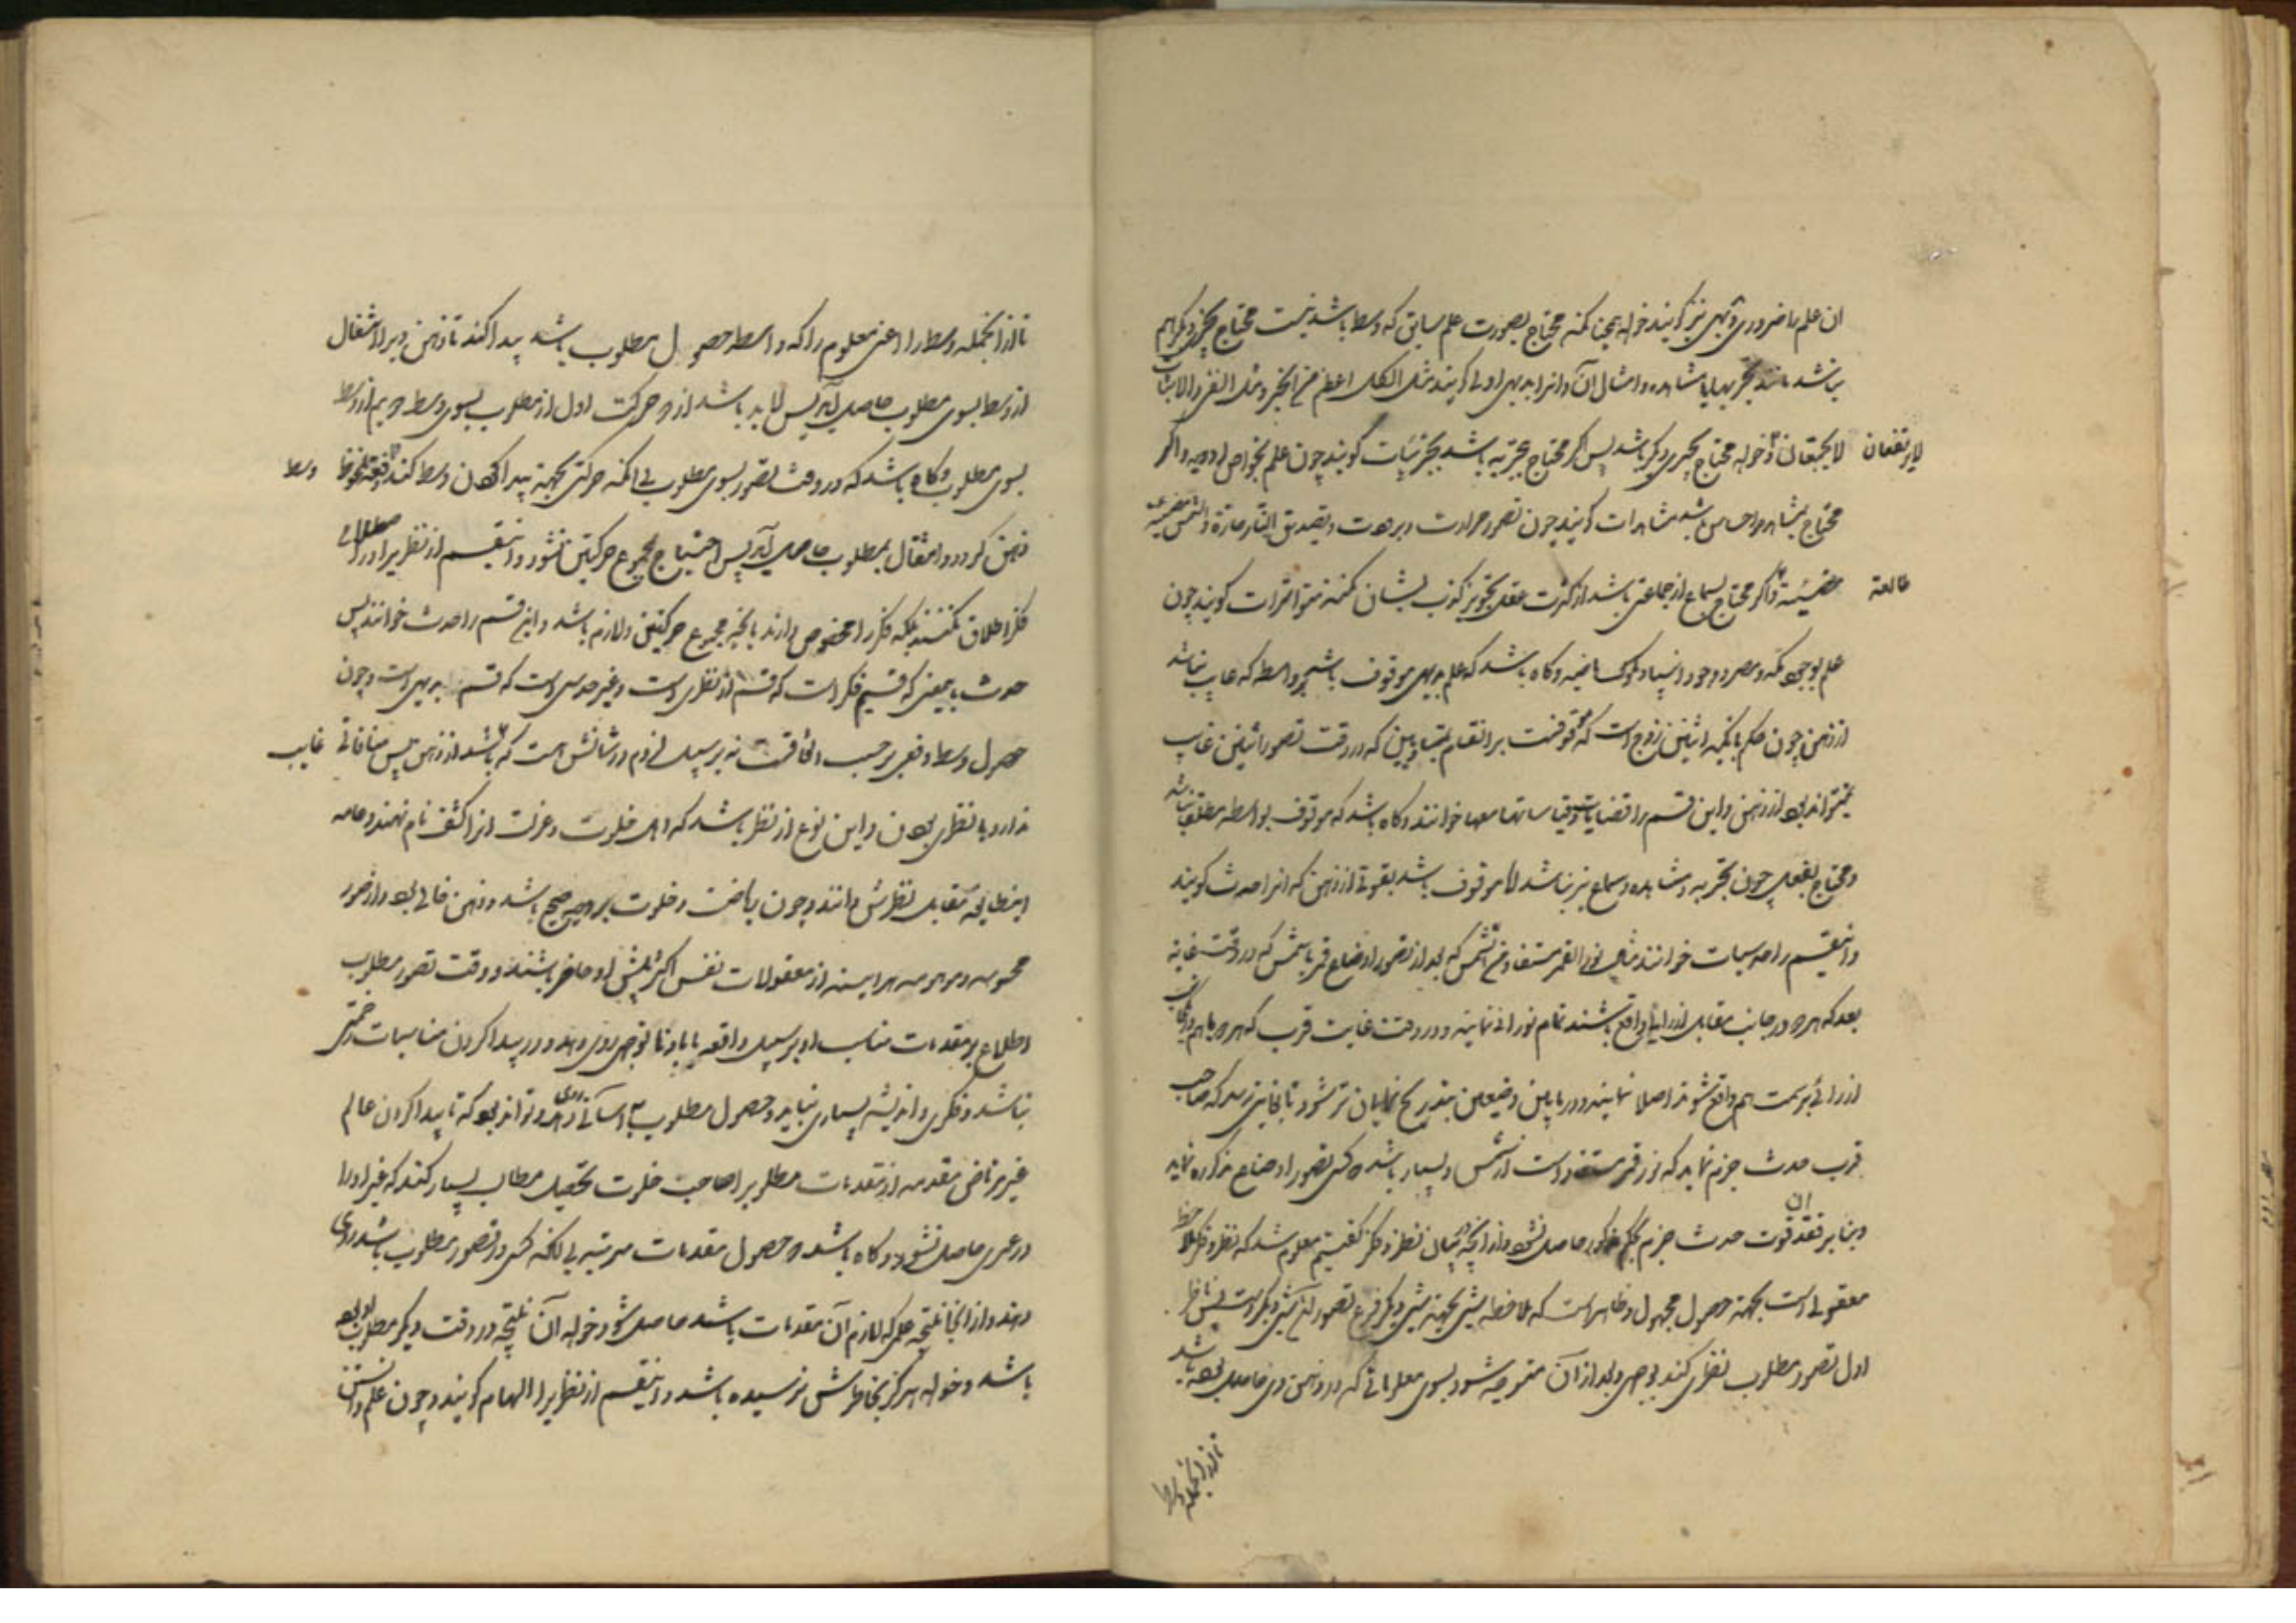 ان علم را ضروری و بدیهی نیز گویند خواه بهیچ گونه محتاج بصورت علم سابق که وسط باشد نیست محتاج بچیزی دیگر هم
نباشد مانند تجربه یا مشاهده و امثال آن و انرا بدیهی اولی گویند مثل الکل اعظم من الجزء و مثل النفی و الاثبات
لا یجتمعان و لایرتفعان و خواه محتاج بچیزی دیگر باشد پس اگر محتاج بتجربه باشد تجربیات گویند چون علم بخواص ادویه و اگر
محتاج بمشاهده و احساس باشد مشاهدات گویند چون تصور حرارت و برودت و تصدیق النار حارة و الشمس مضیئة
مضیئة طالعة و اگر محتاج بسماع از جماعتی باشد از کثرت عقل تجویز کذب ایشان نکند متواترات گویند چون
علم بوجود مکه و مصر و وجود انبیا و ملوک ماضیه و گاه باشد که علم بدیهی موقوف باشد بر واسطه که غایب نباشد
از ذهن چون حکم بانکه اثنین زوج است که موقوفست بر انقسام بمتساویین که در وقت تصور اثنین غایب
نمیتواند بود از ذهن و این قسم را قضایا قیاساتها معها خوانند و گاه باشد که موقوف بواسطه مطلقا نباشد
و محتاج بفعلی چون تجربه و مشاهده و سماع نیز نباشد اما موقوف باشد بقوتی از ذهن که انرا حدس گویند
و اینقسم را حدسیات خوانند مثل نور القمر مستفاد من الشمس که بعد از تصور اوضاع قمر با شمس که در وقت غایت
بعد که هر دو در جانب مقابل از رائی واقع باشند تمام نورانی نماید و در وقت غایت قرب که هر دو با هم در یکجانب
از رائی بر سمت هم واقع شوند اصلا ننماید و در مابین وضعین بتدریج نمایان تر شود تا بغایتی رسد که صاحب
قوت حدس جزم نماید که نور قمر مستفاد است از شمس و بسیار باشد که کسی تصور اوضاع مذکوره نماید
و بنابر فقد ان قوت حدس جزم بحکم مذکور حاصل نشود و از انچه در بیان نظر و فکر گفتیم معلوم شد که نظر و فکر ملاحظه
معقولی است بجهته حصول مجهول و ظاهر است که ملاحظه شیئی بجهته شیئی دیگر فرع تصور آن شیئی دیگر است پس ناظر
اول تصور مطلوب نظری کند بوجهی و بعد از آن متوجه شود بسوی معلوماتی که در ذهن وی حاصل بوده باشد
تا از انجمله وسط را
تا از انجمله وسط را اعنی معلوم را که واسطه حصول مطلوب باشد پیدا کند تا ذهن ویرا انتقال
از وسط بسوی مطلوب حاصل آید پس لابد باشد از دو حرکت اول از مطلوب بسوی وسط دویم از وسط
بسوی مطلوب و گاه باشد که در وقت تصور بسوی مطلوب بی انکه حرکتی بجهته پیدا کردن وسط کند دفعة وسط ملحوظ
ذهن گردد و انتقال بمطلوب حاصل آید پس احتیاج بمجموع حرکتین نشود و اینقسم از نظر را در اصطلاح
فکر اطلاق نکنند بلکه فکر را مخصوص دارند بانچه مجموع حرکتین در او لازم باشد و این قسم را حدس خوانند پس
حدس باینمعنی که قسیم فکر است که قسم از نظری است و غیر حدسی است که قسم بدیهی است و چون
حصول وسط دفعی بر حسب اتفاقست نه بر سبیل لزوم و شانش است که غایب باشد از ذهن پس منافاتی
ندارد با نظری بودن و این نوع از نظر باشد که اهل خلوت و عزلت انرا کشف نام نهند و عامه
اینطایفه مقابل نظرش دانند و چون ریاضت و خلوت بر وجه صحیح باشد و ذهن خالی بود از صور
محسوسه و موهومه هر اینه از معقولات نفس اکثر پیش او حاضر باشند و در وقت تصور مطلوب
اطلاع بر مقدمات مناسب او بر سبیل دفعه یا بادنا توجهی روی دهد و در پیدا کردن مناسبات زحمتی
نباشد و فکری و اندیشه بسیاری نباید و حصول مطلوب به اسانی روی دهد و تواند بود که تا پیدا کردن عالم
غیر مرتاض مقدمه از مقدمات مطلوبرا صاحب خلوت تحصیل مطالب بسیار کند که غیر او را
در عمری حاصل نشود و گاه باشد که حصول مقدمات مرتبه بی انکه کسی در تصور مطلوب باشد روی
دهد و از انجا نتیجه علمی که لازم آن مقدمات باشد حاصل شود خواه آن نتیجه در وقت دیگر مطلوب او بوده
باشد و خواه هرگز بخاطرش نرسیده باشد و اینقسم از نظر را الهام گویند و چون علم دانستن